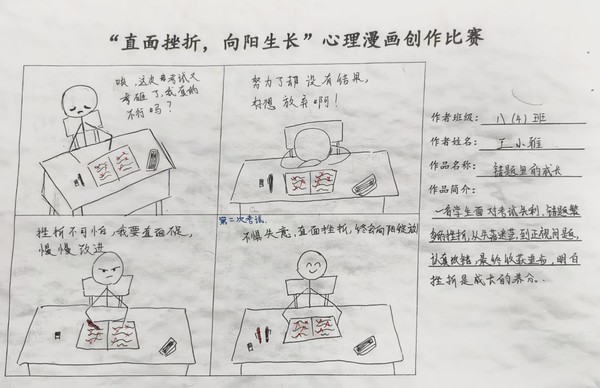 “直面挫折，向阳生长”心理漫画创作比赛
唉，这次的考试又
考砸了，我真的
不行吗？
努力了却没有结果，
好想放弃啊！
挫折不可怕，我要直面不足，
慢慢改进
第二次考试
不惧失意，直面挫折，终会向阳绽放！
作者班级：八（4）班
作者姓名：丁小雅
作品名称：错题里的成长
作品简介：
一名学生面对考试失利，错题繁
多的挫折，从失落迷茫，到正视问题，
认真改错，最终收获进步，明白
挫折是成长的养分。